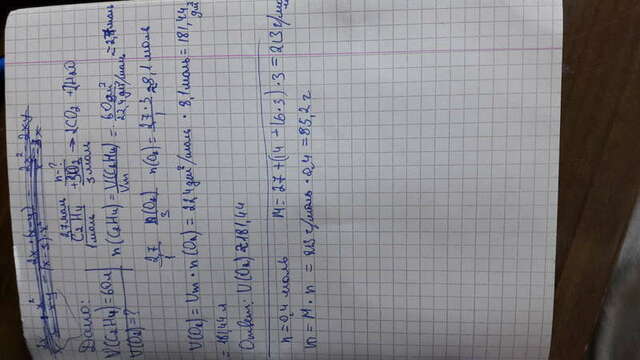 Дано:
V(C₂H₄)=60л
V(O₂)=?
2,7моль n-?
C₂H₄ + 3O₂ → 2CO₂ + 2H₂O
1моль 3моль
n(C₂H₄) = V(C₂H₄)/Vm = 60дм³/22,4дм³/моль ≈ 2,7моль
2,7/1 = n(O₂)/3 n(O₂) = 2,7·3/1 = 8,1 моль
V(O₂) = Vm · n(O₂) = 22,4 дм³/моль · 8,1 моль = 181,44 дм³
= 181,44 л
Ответ: V(O₂) ≈ 181,44
n = 0,4 моль M = 27 + (14 + 16·3)·3 = 213 г/моль
m = M · n = 213 г/моль · 0,4 = 85,2 г